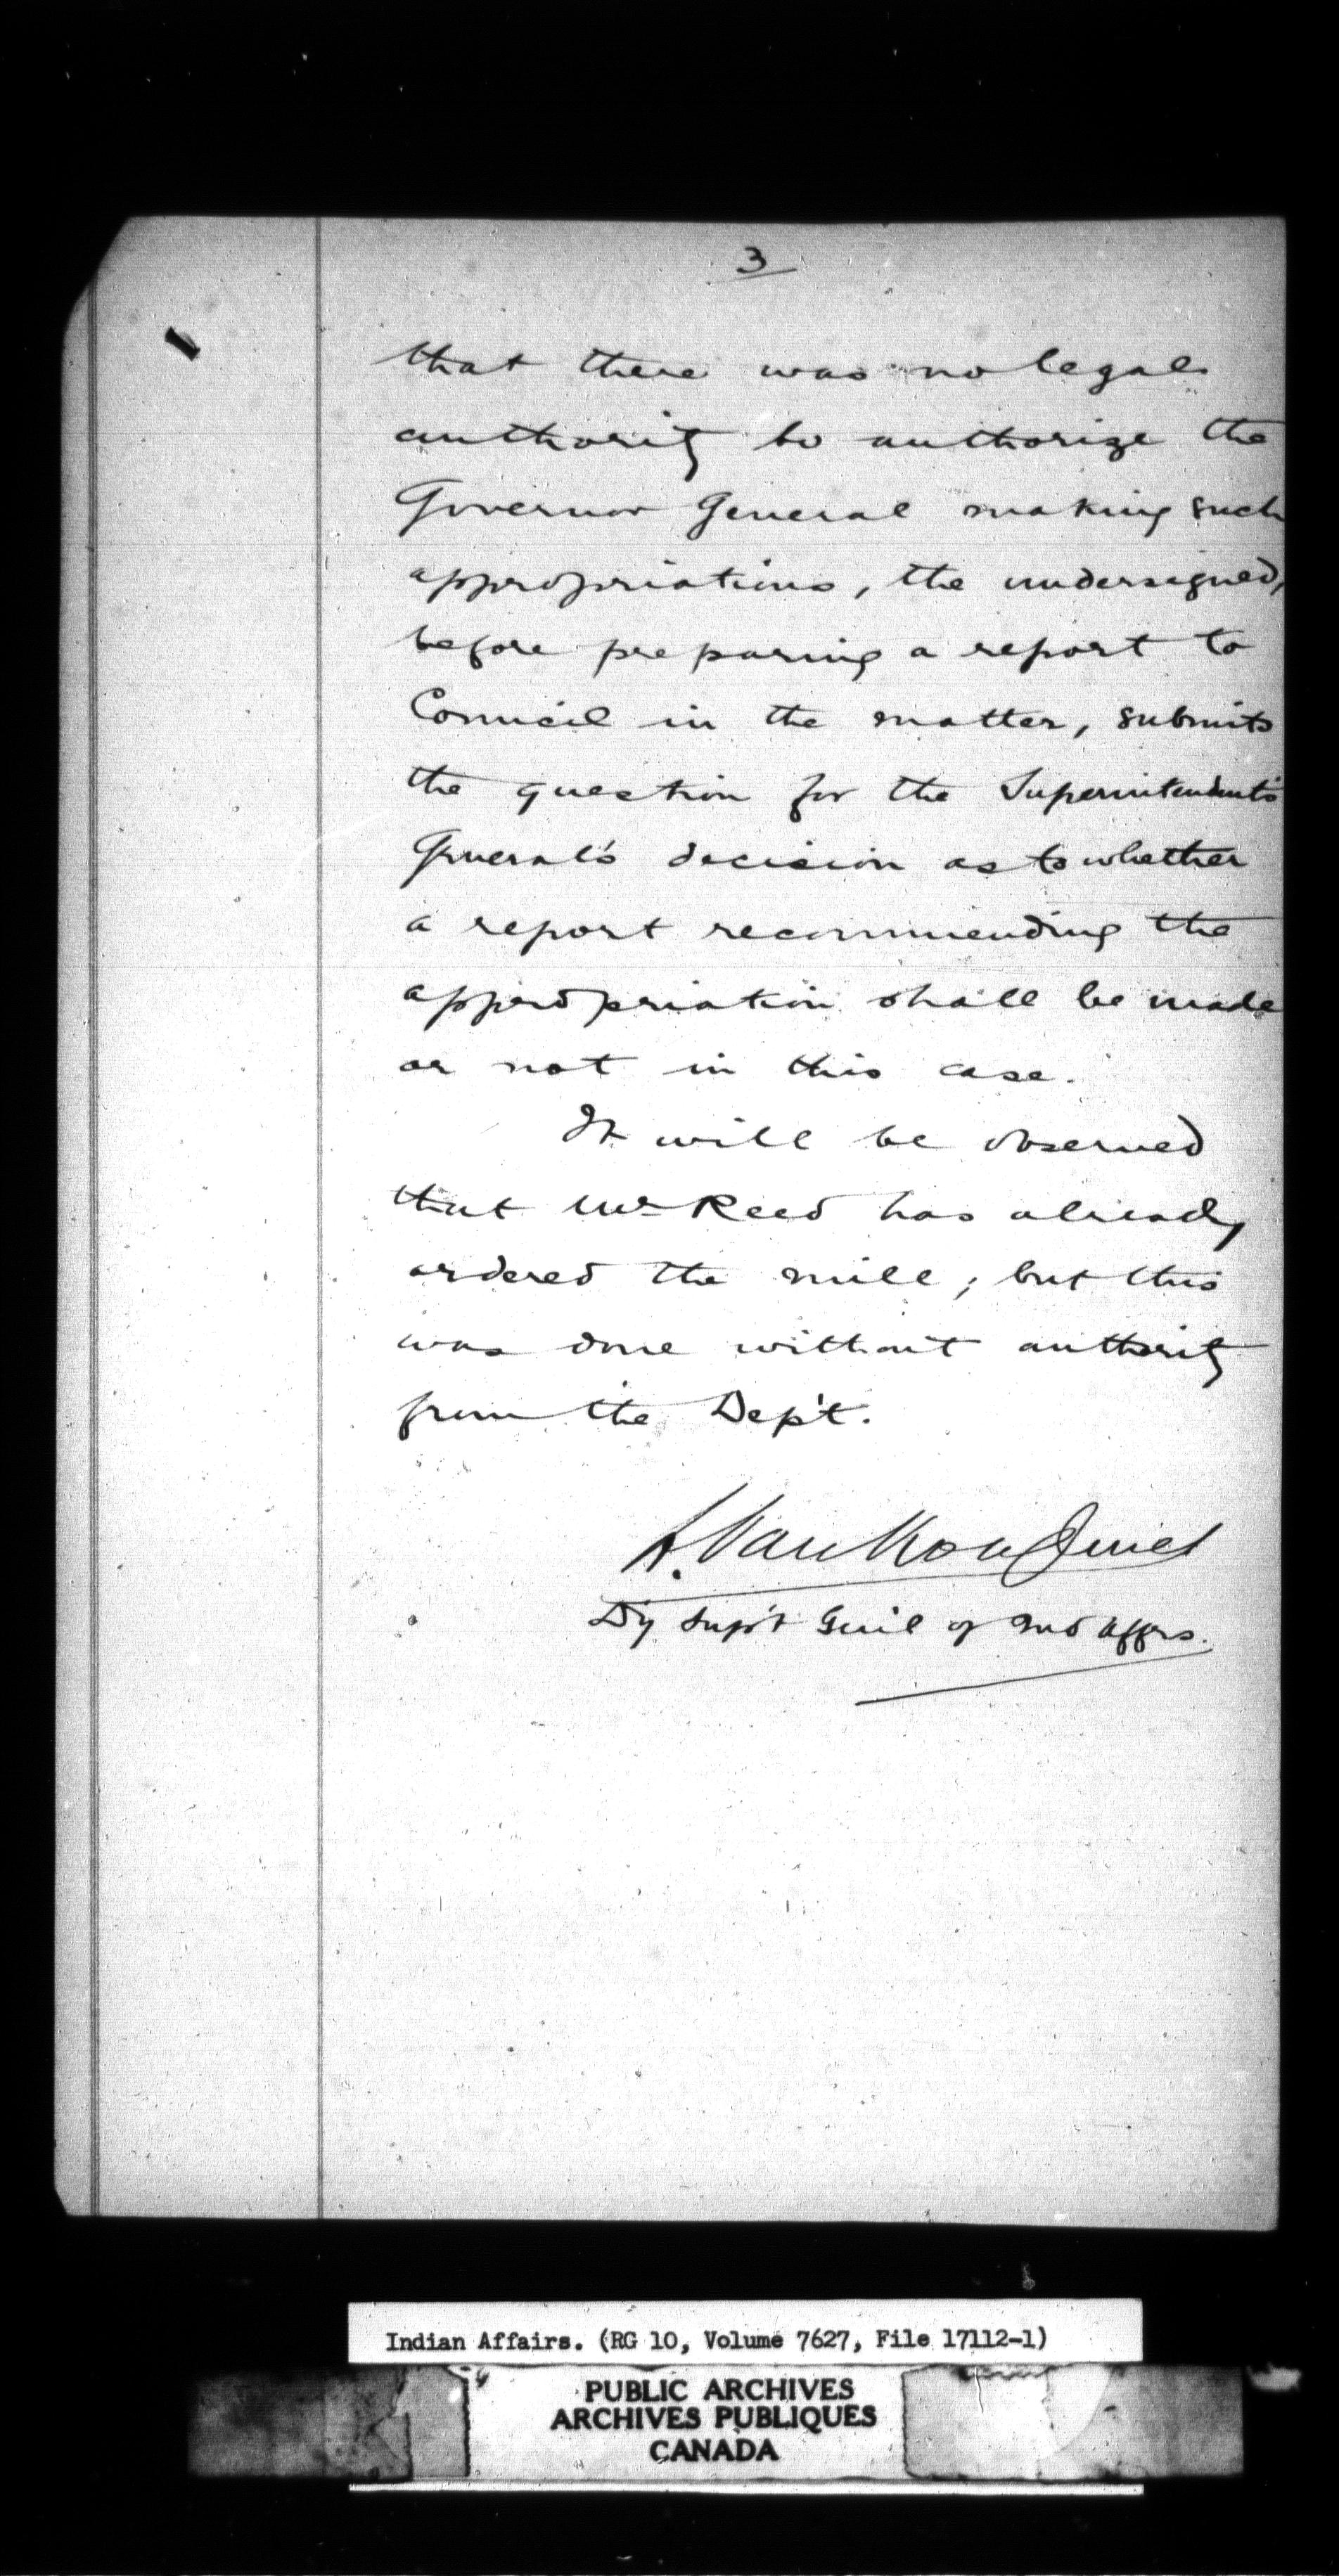 3
that there was no legal
authority to authorize the
Governor General making such
appropriations, the undersigned,
before preparing a report to
Council in the matter, submits
the question for the Superintendent's
General's decision as to whether
a report recommending the
appropriation shall be made
or not in this case.
It will be observed
that Mr Reed has already
ordered the mill; but this
was done without authority
from the Dep't.
L. VanKoughnet
D'y Sup't Gen'l of Ind Affrs.
Indian Affairs. (RG 10, Volume 7627, File 17112-1)
PUBLIC ARCHIVES
ARCHIVES PUBLIQUES
CANADA